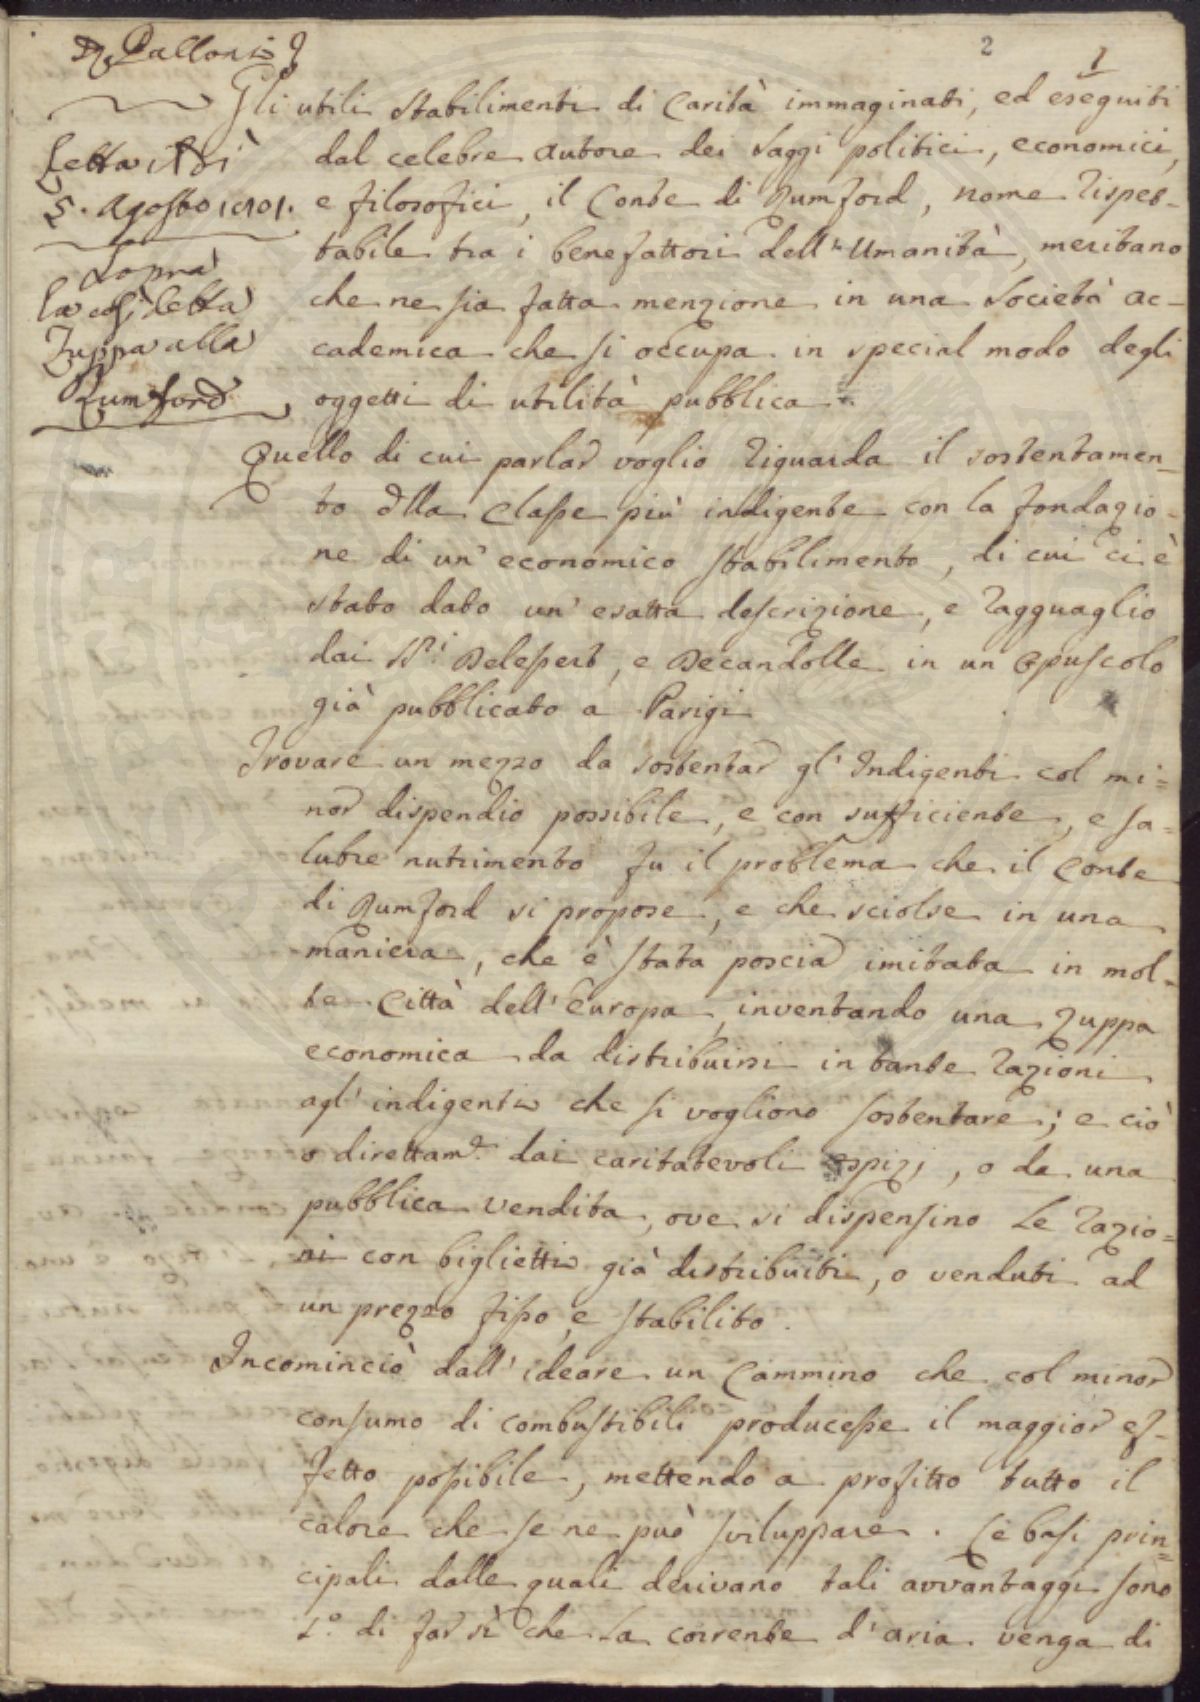 Palloni
Letta Adì
5. Agosto 1801.
Sopra
la così detta
Zuppa alla
Rumford
2
1
Gli utili stabilimenti di Carità immaginati, ed eseguiti
dal celebre Autore dei saggi politici, economici,
e filosofici, il Conte di Rumford, nome rispet-
tabile tra i benefattori dell'Umanità, meritano
che ne sia fatta menzione in una Società ac-
cademica che si occupa in special modo degli
oggetti di utilità pubblica.
Quello di cui parlar voglio riguarda il sostentamen-
to della Classe più indigente con la fondazio-
ne di un' economico stabilimento, di cui ci è
stato dato un' esatta descrizione, e ragguaglio
dai SS.i Delessert, e Decandolle in un Opuscolo
già pubblicato a Parigi
Trovare un mezzo da sostentar gl'Indigenti col mi=
nor dispendio possibile, e con sufficiente, e sa=
lubre nutrimento fu il problema che il Conte
di Rumford si propose, e che sciolse in una
maniera, che è stata poscia imitata in mol-
te Città dell'Europa, inventando una zuppa
economica da distribuirsi in tante razioni
agl'indigenti che si vogliono sostentare; e ciò
o direttam.e dai caritatevoli ospizj, o da una
pubblica vendita, ove si dispensino le razio=
ni con biglietti già distribuiti, o venduti ad
un prezzo fisso, e stabilito.
Incominciò dall'ideare un Cammino che col minor
consumo di combustibili producesse il maggior ef-
fetto possibile, mettendo a profitto tutto il
calore che se ne può sviluppare. Le basi prin=
cipali dalle quali derivano tali avvantaggi sono
1.o di far sì che la corrente d'aria venga di